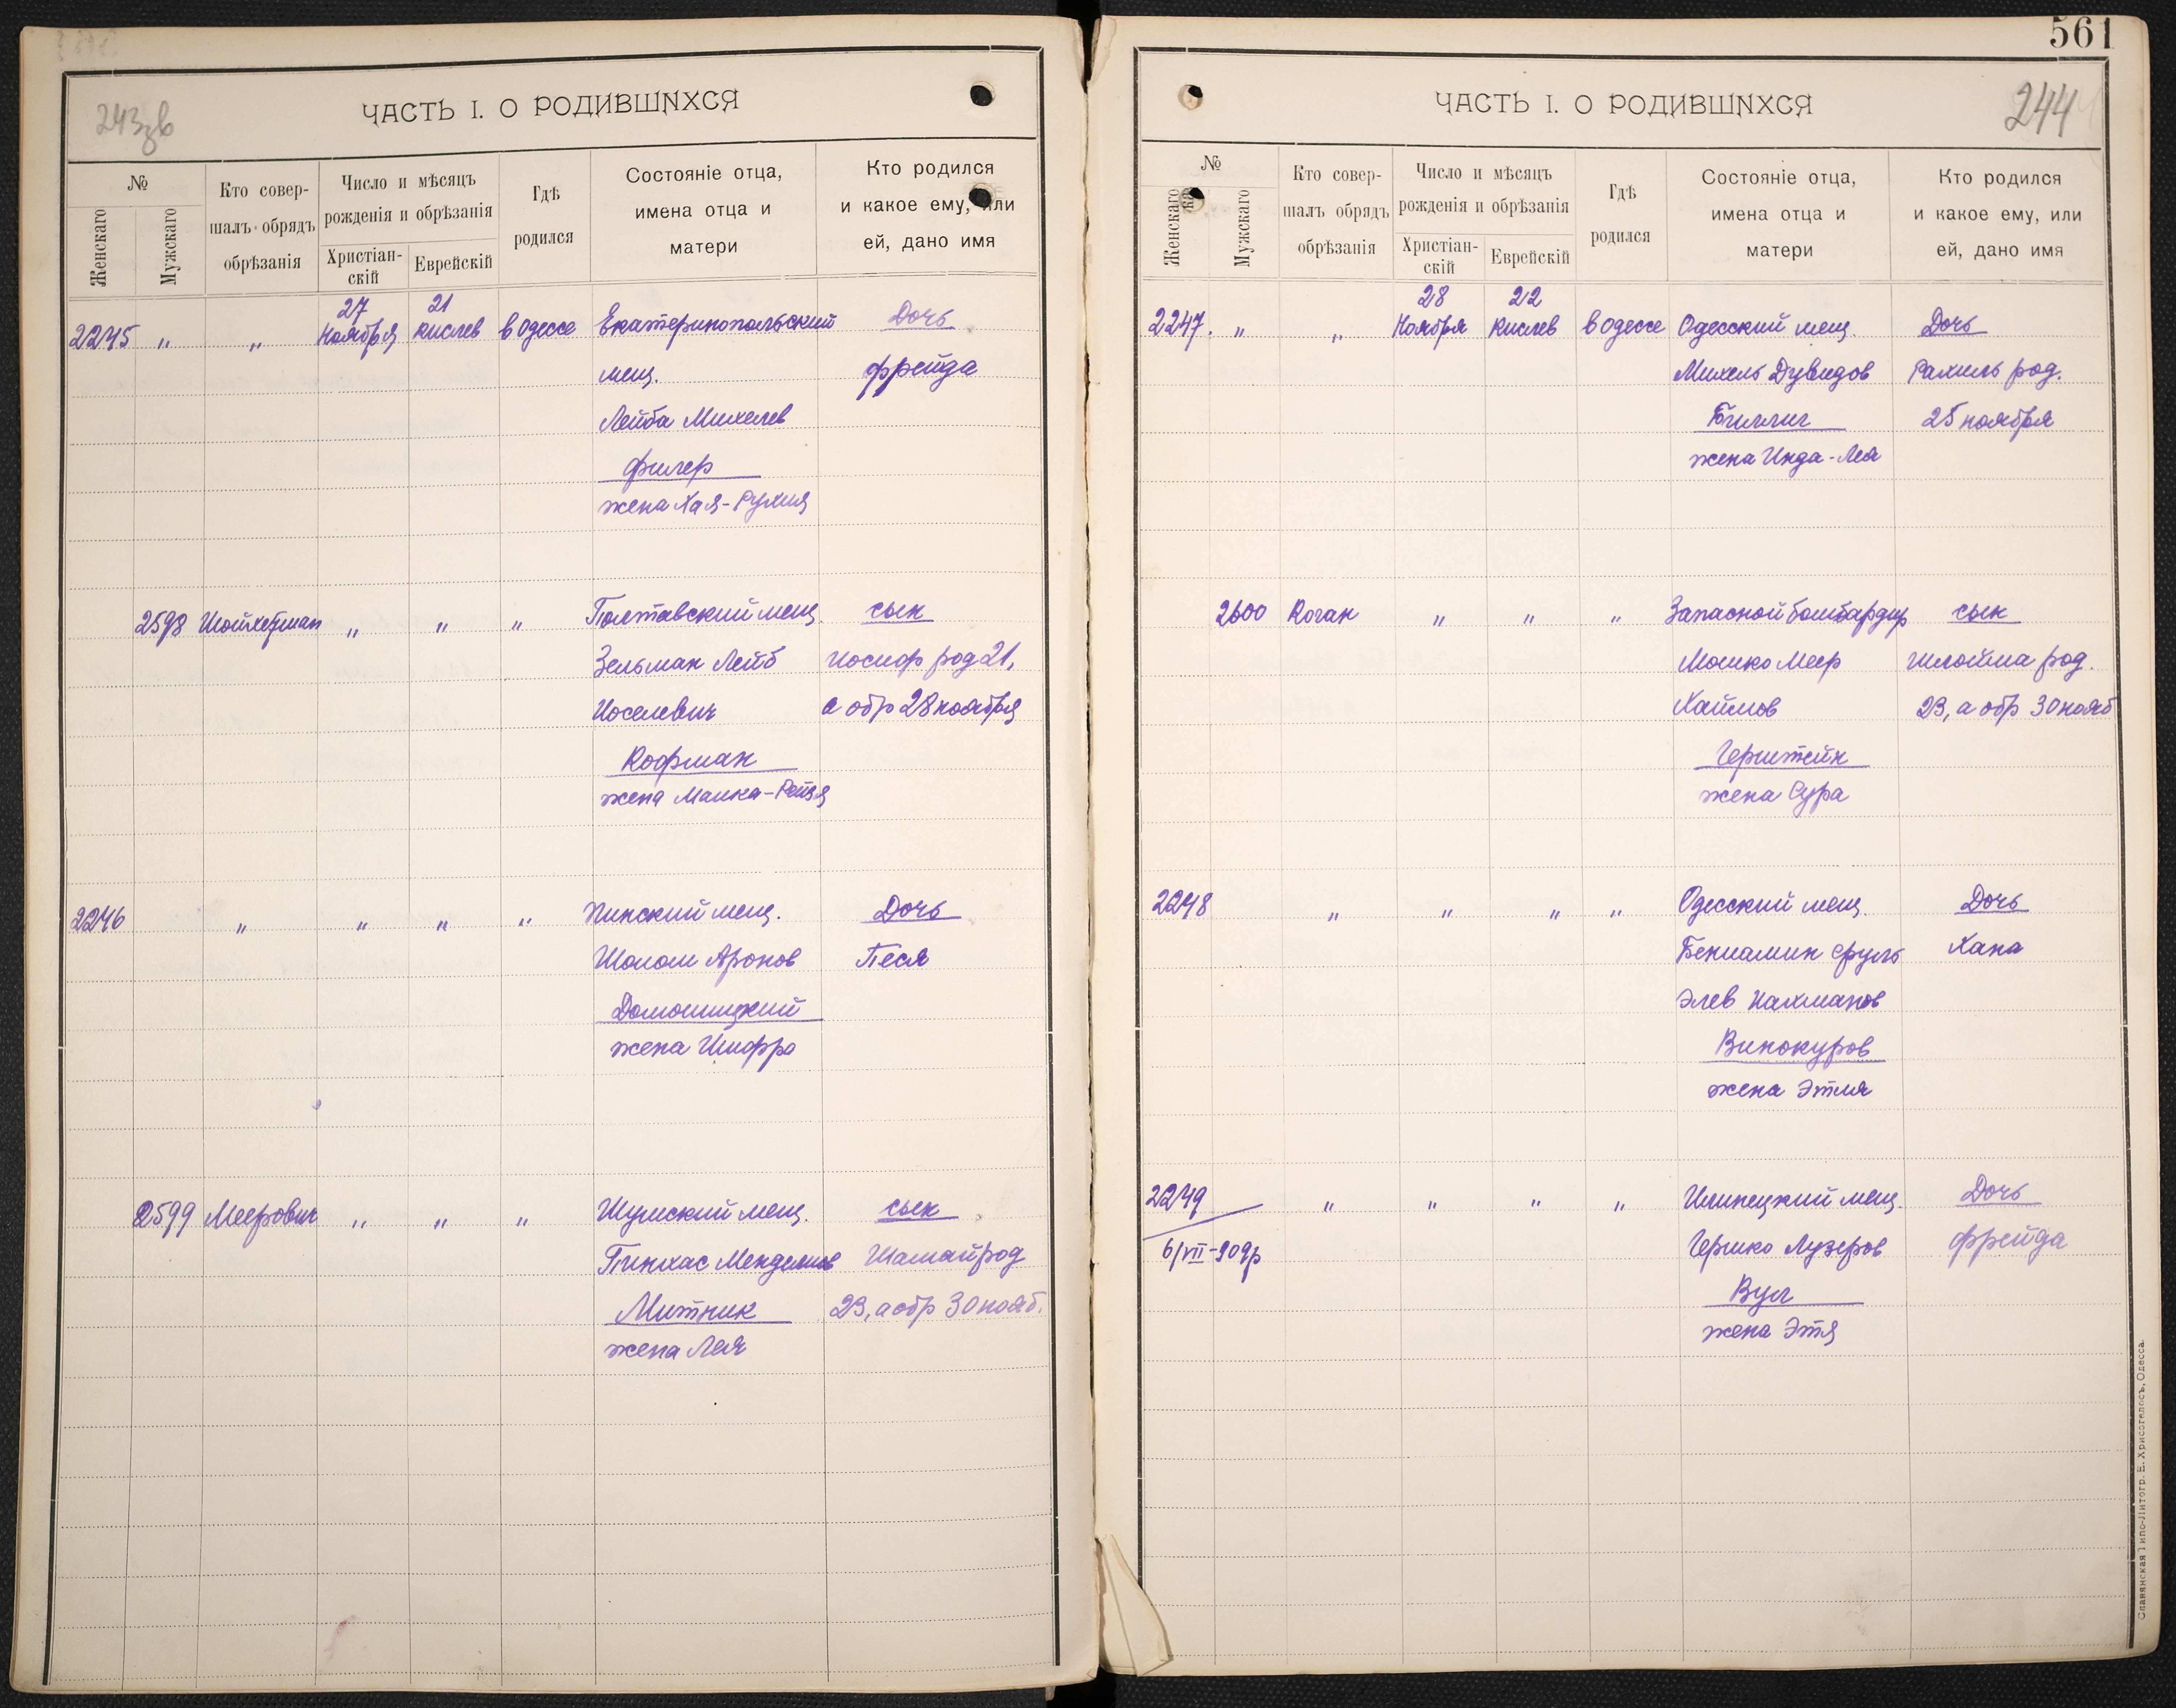 243зв
ЧАСТЬ I. О РОДИВШИХСЯ
№
Женскаго
Мужскаго
Кто совер-
шалъ обрядъ
обрѣзанія
Число и мѣсяцъ
рожденія и обрѣзанія
Христіан-
скій
Еврейскій
Гдѣ
родился
Состояніе отца,
имена отца и
матери
Кто родился
и какое ему, или
ей, дано имя
27 21
2245 „ „ Ноября Кислев в Одессе Екатеринопольский Дочь
мещ. Фрейда
Лейба Михелев
Филер
жена Хая-Рухля
2598 Шойхетман „ „ „ Полтавский мещ. сын
Зельман Лейб Иосиф род 21,
Иоселевич а обр 28 ноября
Кофман
жена Малка-Рейзя
2246 „ „ „ „ Пинский мещ. Дочь
Шолом Аронов Песя
Домошицкий
жена Шифра
2599 Меерович „ „ „ Шумский мещ. сын
Пинхас Менделиов Шамай род
Митник 23, а обр 30 нояб.
жена Лея
561
244
ЧАСТЬ I. О РОДИВШИХСЯ
№
Женскаго
Мужскаго
Кто совер-
шалъ обрядъ
обрѣзанія
Число и мѣсяцъ
рожденія и обрѣзанія
Христіан-
скій
Еврейскій
Гдѣ
родился
Состояніе отца,
имена отца и
матери
Кто родился
и какое ему, или
ей, дано имя
28 22
2247. „ „ Ноября Кислев в Одессе Одесский мещ. Дочь
Михель Дувидов Рахиль род.
Биллиг 25 ноября
жена Инда-Лея
2600 Коган „ „ „ Запасной бомбардир сын
Мошко Меер Шлойма род.
Хаимов 23, а обр 30 нояб
Герштейн
жена Сура
2248 „ „ „ „ Одесский мещ. Дочь
Бениамин Сруль Хана
Элев Нахманов
Винокуров
жена Этля
2249 „ „ „ „ Илинецкий мещ. Дочь
6/VII-90 др Гершко Лузеров Фрейда
Вул
жена Этя
Славянская Типо-Литогр. Е. Хрисогелосъ, Одесса.